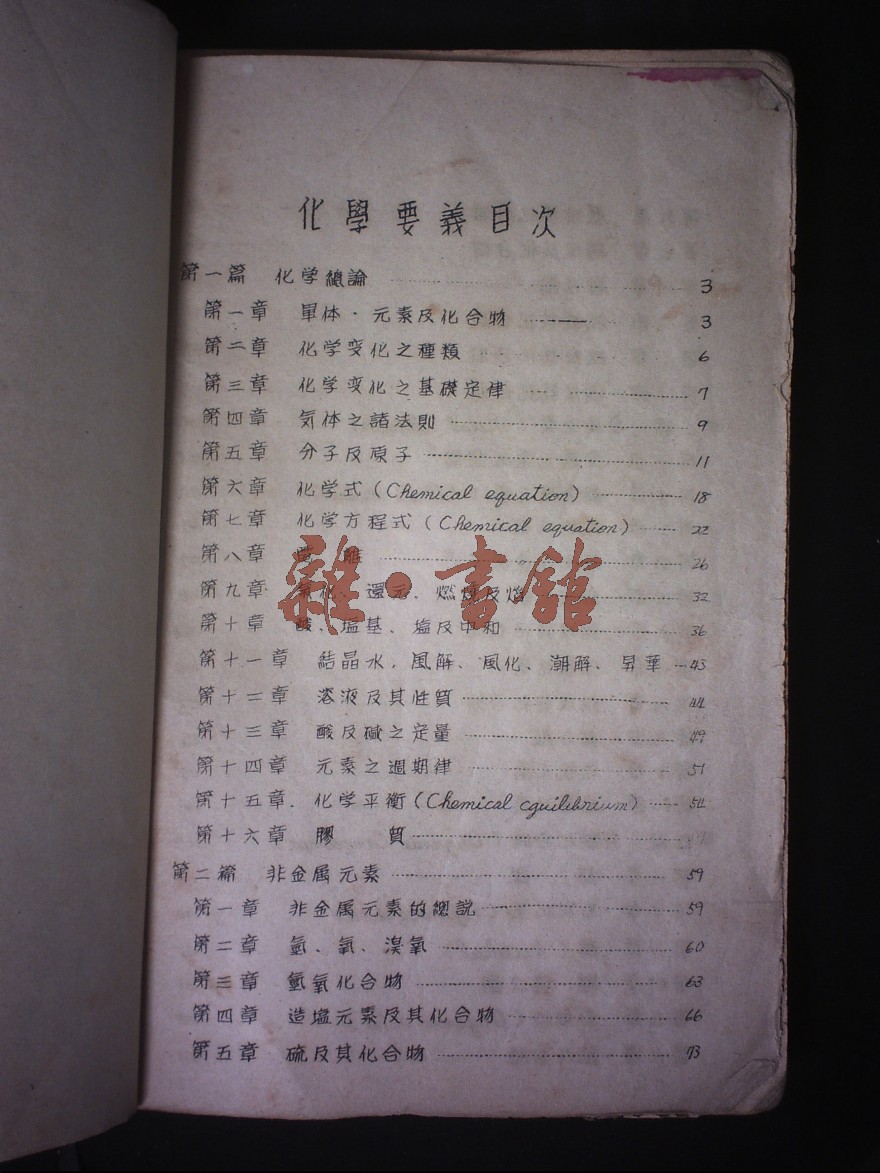 化學要義目次
第一篇 化学總論 3
第一章 單体·元素及化合物 3
第二章 化学変化之種類 6
第三章 化学変化之基礎定律 7
第四章 気体之諸法則 9
第五章 分子及原子 11
第六章 化学式(Chemical equation) 18
第七章 化学方程式(Chemical equation) 22
第八章 26
第九章 氧化、還元、燃燒及焰 32
第十章 酸、塩基、塩及中和 36
第十一章 結晶水,風解、風化、潮解、昇華 43
第十二章 溶液及其性質 44
第十三章 酸及碱之定量 49
第十四章 元素之週期律 51
第十五章. 化学平衡(Chemical cquilibrium) 54
第十六章 膠質
第二篇 非金属元素 59
第一章 非金属元素的總説 59
第二章 氫、氧、溴氧 60
第三章 氫氧化合物 63
第四章 造塩元素及其化合物 66
第五章 硫及其化合物 73
雜·書館